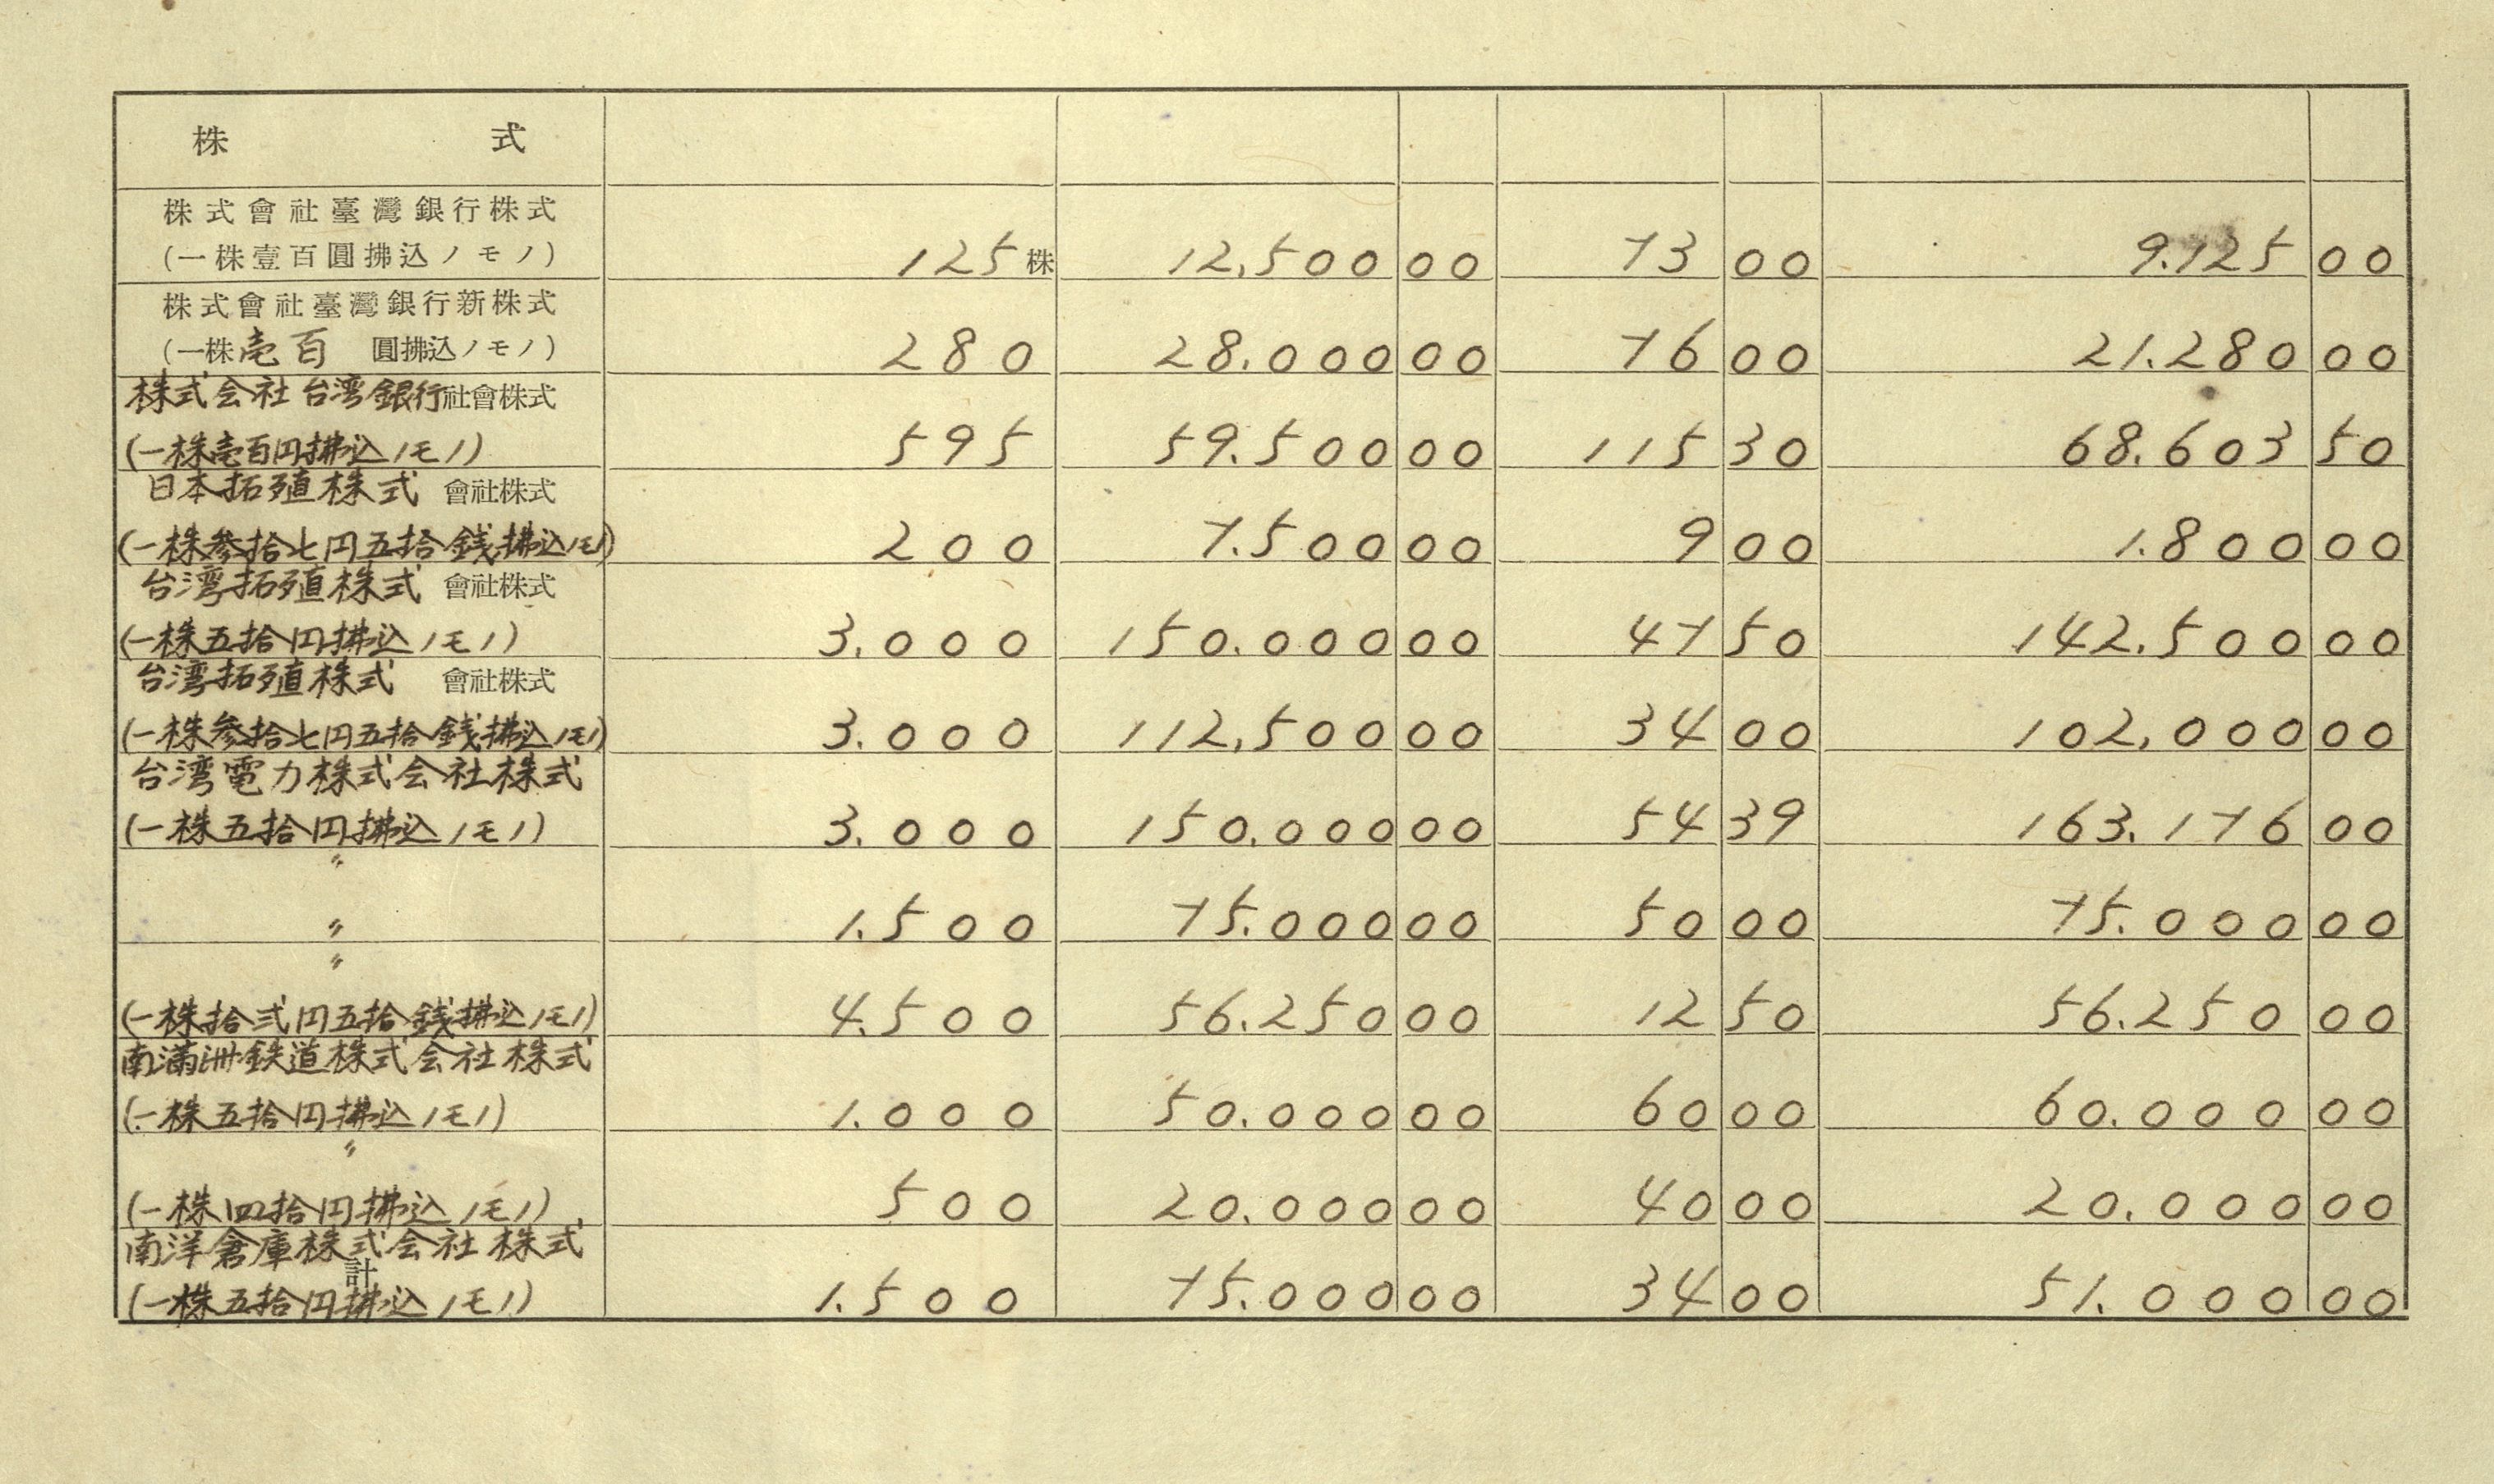 株式
株式會社臺灣銀行株式
(一株壹百圓拂込ノモノ) 125株 12,500 00 73 00 9.125 00
株式會社臺灣銀行新株式
(一株壱百 圓拂込ノモノ) 280 28.000 00 76 00 21.280 00
株式会社台湾銀行社會株式
(一株壱百円拂込ノモノ) 595 59.500 00 115 30 68.603 50
日本拓殖株式 會社株式
(一株参拾七円五拾銭拂込ノモノ) 200 7.500 00 9 00 1.800 00
台湾拓殖株式 會社株式
(一株五拾円拂込ノモノ) 3.000 150.000 00 47 50 142.500 00
台湾拓殖株式 會社株式
(一株参拾七円五拾銭拂込ノモノ) 3.000 112,500 00 34 00 102,000 00
台湾電力株式会社株式
(一株五拾円拂込ノモノ) 3.000 150.000 00 54 39 163.176 00
〃
〃 1.500 75.000 00 50 00 75.000 00
〃
(一株拾弐円五拾銭拂込ノモノ) 4.500 56.250 00 12 50 56.250 00
南滿洲鉄道株式会社株式
(一株五拾円拂込ノモノ) 1.000 50.000 00 60 00 60.000 00
〃
(一株四拾円拂込ノモノ) 500 20.000 00 40 00 20.000 00
南洋倉庫株式会社株式
計
(一株五拾円拂込ノモノ) 1.500 75.000 00 34 00 51.000 00